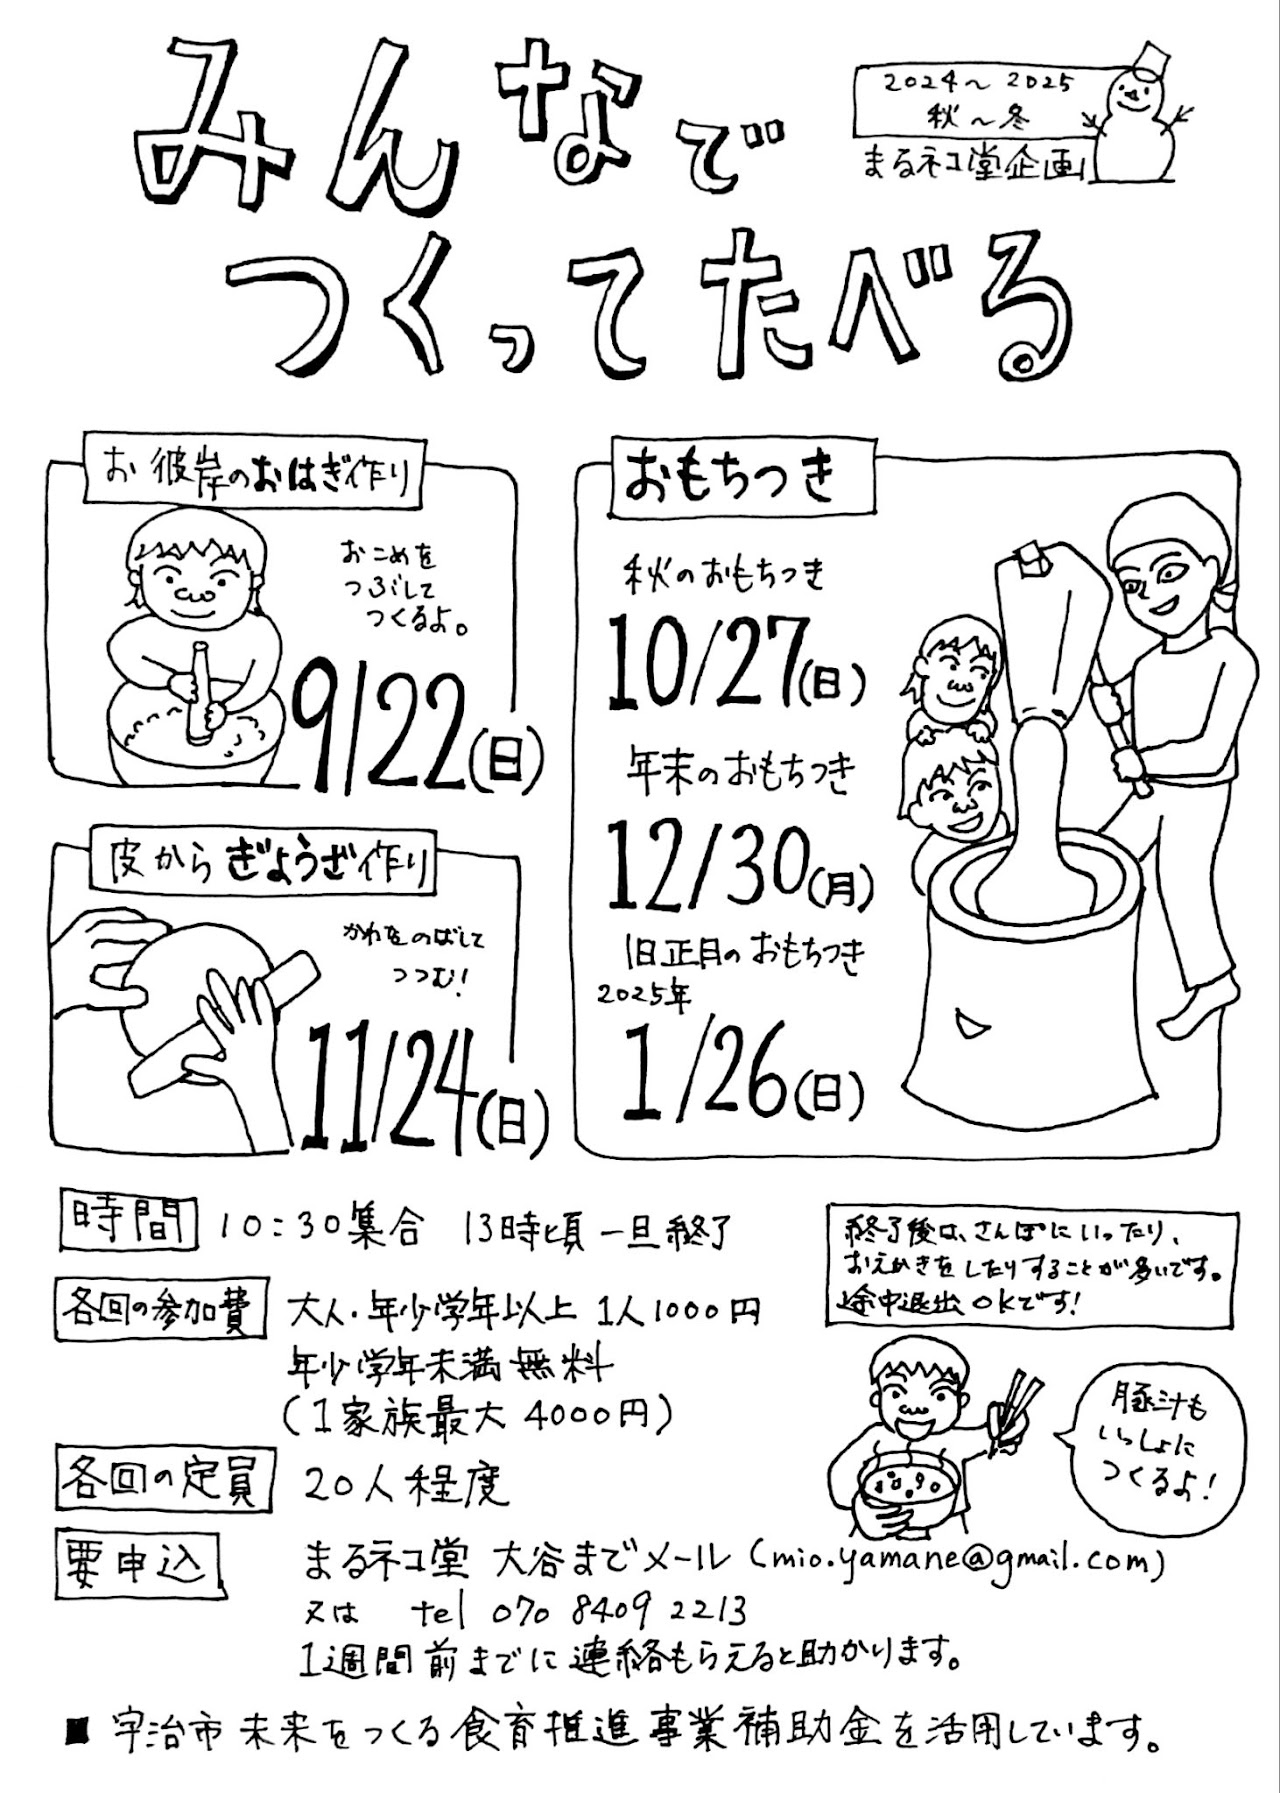 みんなで
つくってたべる
2024〜2025
秋〜冬
まるネコ堂企画
お彼岸のおはぎ作り
おこめを
つぶして
つくるよ。
9/22(日)
皮からぎょうざ作り
かわをのばして
つつむ!
11/24(日)
おもちつき
秋のおもちつき
10/27(日)
年末のおもちつき
12/30(月)
旧正月のおもちつき
2025年
1/26(日)
時間 10:30集合 13時頃一旦終了
各回の参加費 大人・年少学年以上 1人1000円
年少学年未満無料
(1家族最大4000円)
各回の定員 20人程度
終了後は、さんぽにいったり、
おえかきをしたりすることが多いです。
途中退出OKです!
豚汁も
いっしょに
つくるよ!
要申込 まるネコ堂 大谷までメール(mio.yamane@gmail.com)
又は tel 070 8409 2213
1週間前までに連絡もらえると助かります。
■ 宇治市未来をつくる食育推進事業補助金を活用しています。